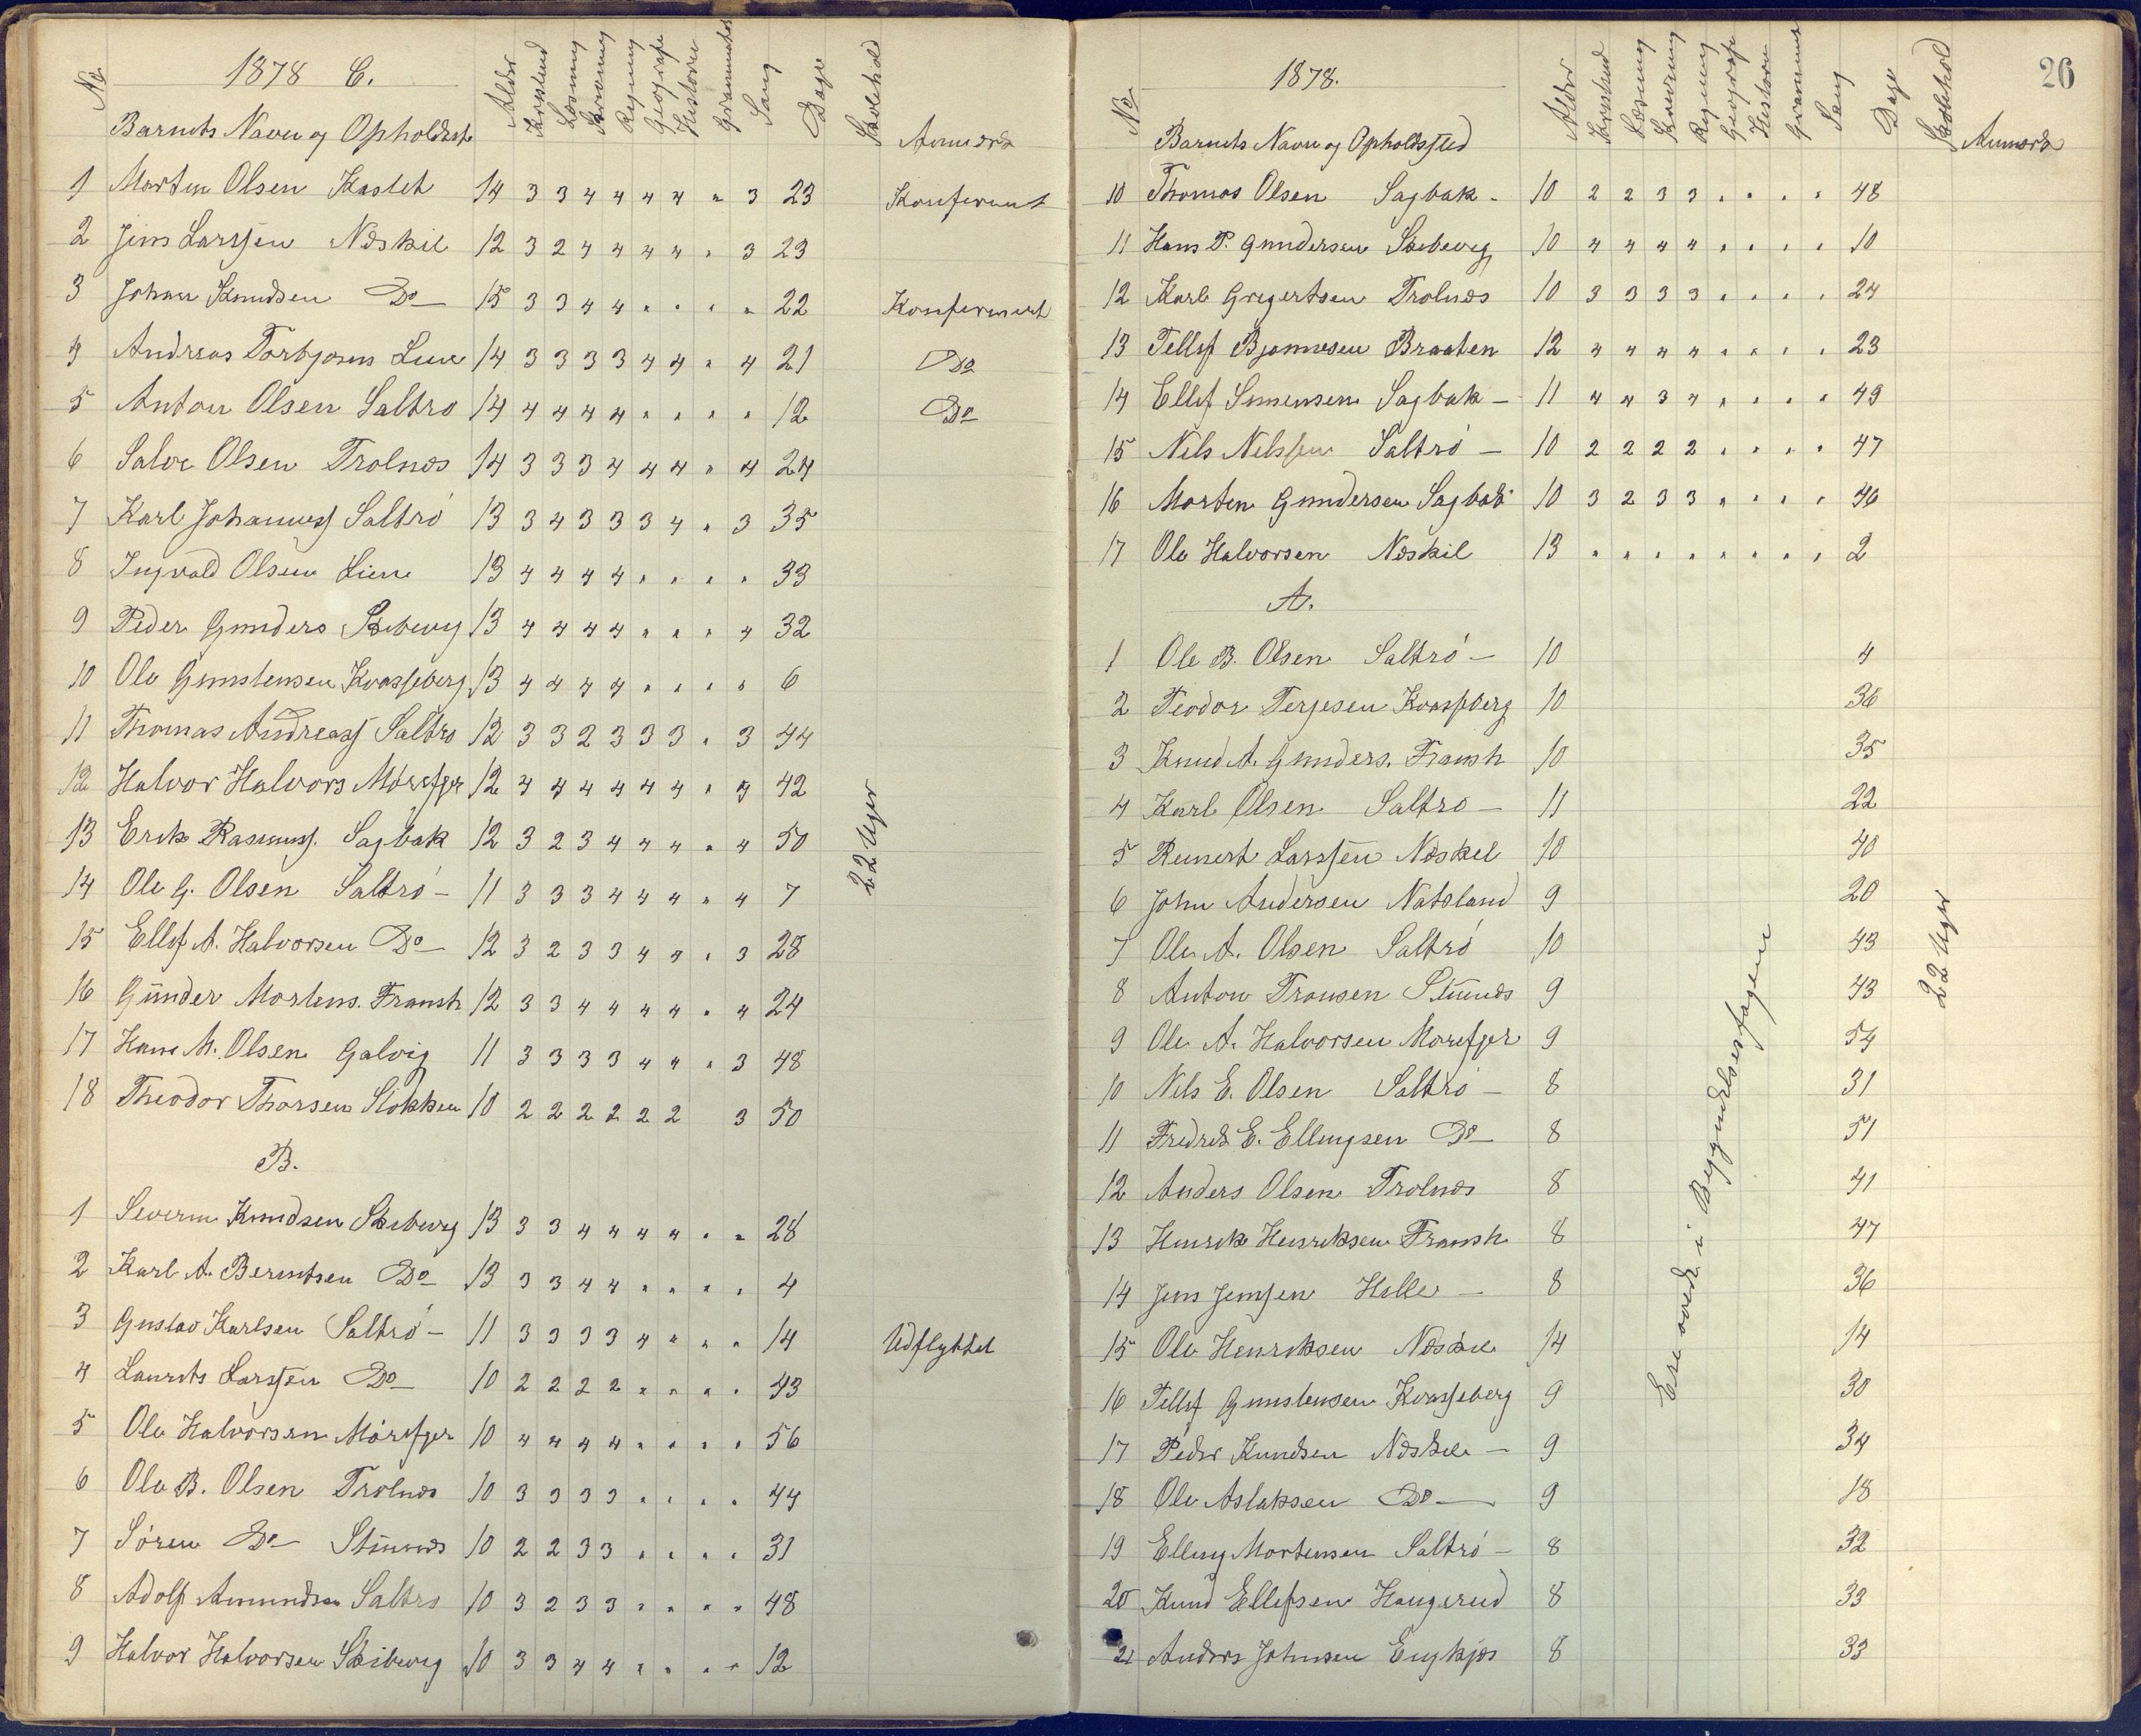 1878 C.
No
Barnets Navn og Opholdsst
Alder
Kristend
Læsning
Skrivning
Regning
Geografi
Historie
Sang
Dage
Skolehold
Anmærk
1 Morten Olsen Kastet 14 3 3 4 4 4 4 " 3 23 Konfermert
2 Jens Larssen Næskil 12 3 2 4 4 4 4 " 3 23
3 Johan Knudsen Do 15 3 3 4 4 " " " " 22 Konfermert
4 Andreas Torbjøsens Lien 14 3 3 3 3 4 4 " 4 21 Do
5 Anton Olsen Saltrø 14 4 4 4 4 " " " " 12 Do
6 Salve Olsen Trolnæs 14 3 3 3 4 4 4 " 4 24
7 Karl Johanness Saltrø 13 3 4 3 3 3 4 " 3 35
8 Ingvald Olsen Liene 13 4 4 4 4 " " " " 33
9 Peder Gunders Skibevig 13 4 4 4 4 " " " 4 32
10 Ole Gunstensen Kvasseberg 13 4 4 4 4 " " " " 6
11 Thomas Andreass Saltrø 12 3 3 2 3 3 3 " 3 44
12 Halvor Halvors Mørefjer 12 4 4 4 4 4 4 " 4 42
13 Erik Rasmuss. Sagbak 12 3 2 3 4 4 4 " 4 50
14 Ole G. Olsen Saltrø – 11 3 3 3 4 4 4 " 4 7
15 Ellef A. Halvorsen Do 12 3 2 3 3 4 4 " 3 28
16 Gunder Mortens. Fransh 12 3 3 4 4 4 4 " 4 24
17 Hans M. Olsen Galvig 11 3 3 3 3 4 4 " 3 48
18 Theodor Thorsen Slokken 10 2 2 2 2 2 2 3 50
22 Uger
B.
1 Severin Knudsen Skibevig 13 3 3 4 4 4 4 " " 28
2 Karl A. Berntsen Do 13 3 3 4 4 " " " " 4
3 Gustav Karlsen Saltrø – 11 3 3 3 3 4 " " " 14 Udflyttet
4 Laurits Larssen Do 10 2 2 2 2 " " " " 43
5 Ole Halvorsen Mørefjer 10 4 4 4 4 " " " " 56
6 Ole B. Olsen Trolnæs 10 3 3 3 3 " " " " 44
7 Søren Do 10 2 2 3 3 " " " " 31
8 Adolf Amundsen Saltrø 10 3 2 3 3 " " " " 48
9 Halvor Halvorsen Skibevig 10 3 3 4 4 " " " " 12
26
1878.
No
Barnets Navn og Opholdssted
Alder
Kristend
Læsning
Skrivning
Regning
Geografi
Historie
Sang
Dage
Skolehold
Anmærk
10 Thomas Olsen Sagbak – 10 2 2 3 3 " " " " 48
11 Hans P. Gundersen Skibevig 10 4 4 4 4 " " " " 10
12 Karl Gregertsen Trolnæs 10 3 3 3 3 " " " " 24
13 Tellef Bjonnesen Braaten 12 4 4 4 4 " " " " 23
14 Ellef Simensen Sagbak – 11 4 4 3 4 " " " " 49
15 Nels Nelssen Saltrø – 10 2 2 2 2 " " " " 47
16 Morten Gundersen Sagbak 10 3 2 3 3 " " " " 46
17 Ole Halvorsen Næskil 13 " " " " " " " " 2
A.
1 Ole B. Olsen Saltrø – 10 4
2 Teodor Terjesen Kvassberg 10 36
3 Knud A. Gunders. Fransh 10 35
4 Karl Olsen Saltrø – 11 22
5 Reinert Larssen Næskil 10 40
6 John Andersen Natsland 9 20
7 Ole A. Olsen Saltrø 10 43
8 Anton Tronsen 9 43
9 Ole A. Halvorsen Mørefjer 9 54
10 Nels E. Olsen Saltrø – 8 31
11 Fredrik E. Ellingsen Do 8 51
12 Anders Olsen Trolnæs 8 41
13 Henrik Henriksen Fransh 8 47
14 Jens Jenssen Helle – 8 36
15 Ole Henriksen Næskil 14 14
16 Tellef Gunstensen Kvasseberg 9 30
17 Peder Knudsen Næskil – 9 34
18 Ole Aslaksen Do 9 18
19 Elling Mortensen Saltrø – 8 32
20 Knud Ellefsen Haugerud 8 33
21 Anders Johnsen Engkjær 8 33
Ere øvede i Begyndelsesfagene
22 Uger